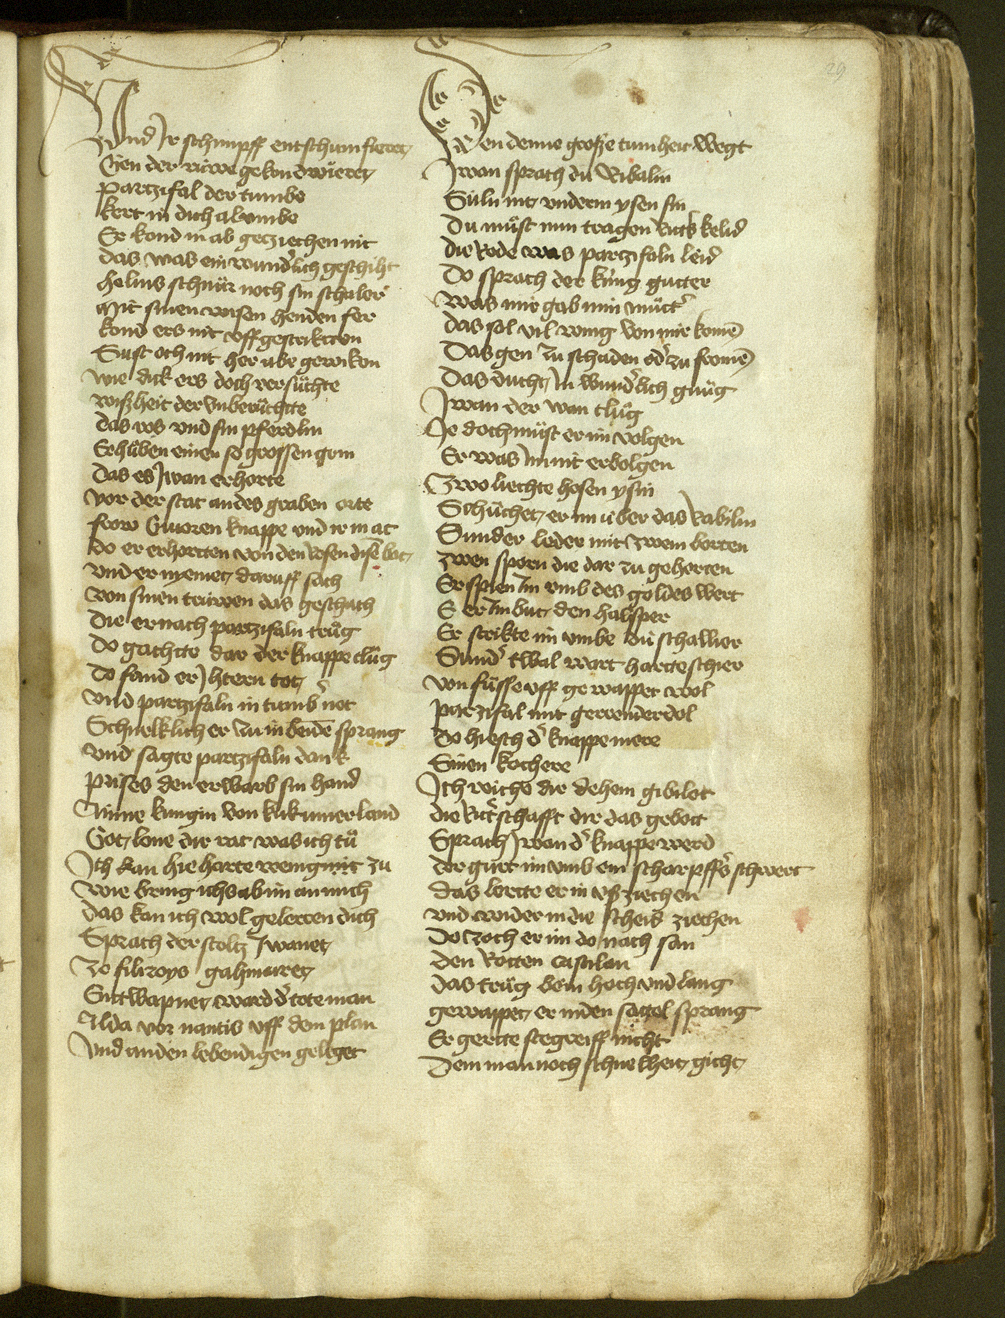 29
Und Ir schimpff entschumfieret
Gen der riuwe gekondwieret
Partzifal der tumbe
kert in dich al vmbe
Er kond im ab geziechen nit
das was ein wundˀlich geschiht
helms schnür noch sin schalier
Mit sinen wisen henden fier
kond ers nit vff gestrikten
Sust och nit her abe gezwiken
wie dick ers doch versüchte
wisheit der vnberüchte
das ros vnd sin pferdlin
Erhüben einen so grossen grin
das es Iwan erhorte
vor der stat an des graben orte
frow Ginoren knappe vnd ir mag
do er erhortten von den rosen disē bat
vnd er niemet daruff sach
von sinen trüwen das geschach
Die er nach partzifaln trůg
Do gachtte dar der knappe clůg
Do fand er Ihtern tot
vnd partzifaln in tumbˀ not
Schnelklich er zu in beidē sprang
vnd sagte partzifaln dank
Prises den erwarb sin hand
Ainne kungin von kukumerland
Got lone dir rat was ich tů
Ich kan hie harte wenig mit zu
wie bring ichs ab im an mich
das kan ich wol geleren dich
Sprach der stoltz Iwanet
Zo filiroys gahmuret
Entwapnet ward dˀ tote man
Alda vor nantis vff dem plan
Vnd an den lebendigen geleget
Den denne große tumheit wegt
Iwan sprach du Ribalin
Süln nit vnderm ysen sin
Du můst nun tragen ritters kleid
die Rede was partzifaln leid
Do sprach der küng gutter
Was mir gab min můtter
das sol vil wenig von mir komē
Das gen zu schaden odˀ zu fromē
Das ducht In wundˀlich gnůg
Iwan der was clůg
Ie doch můst er im volgen
Er was Im nit erbolgen
Zwo liechte hosen ysin
Schůchet er im uber das Rabilin
Sunder leder mit zwein borten
zwen sporn die dar zu gehorten
Er spien Im vmb des goldes wert
E er Im but den halsper
Er strikte im vmbe du schallier
Sundˀ twal wart hartteschier
von füsse vff gewappet wol
Partzifal mit gerender dol
Do hiesch dˀ knappe mere
Sinen kochere
Ich reiche dir dehein gibilot
die Ritˀschafft dir das gebott
Sprach Iwan dˀ knappe werd
der gürt im vmb ein scharpffˀs schwert
das lertte er in vß ziechen
vnd wider in die scheid ziechen
Do zoch er im do nach san
den Rotten castilan
das trůg bein hoch vnd lang
gewappet er in den sattel sprang
Er gertte stegreiff nicht
Dem man noch schnelheit gicht